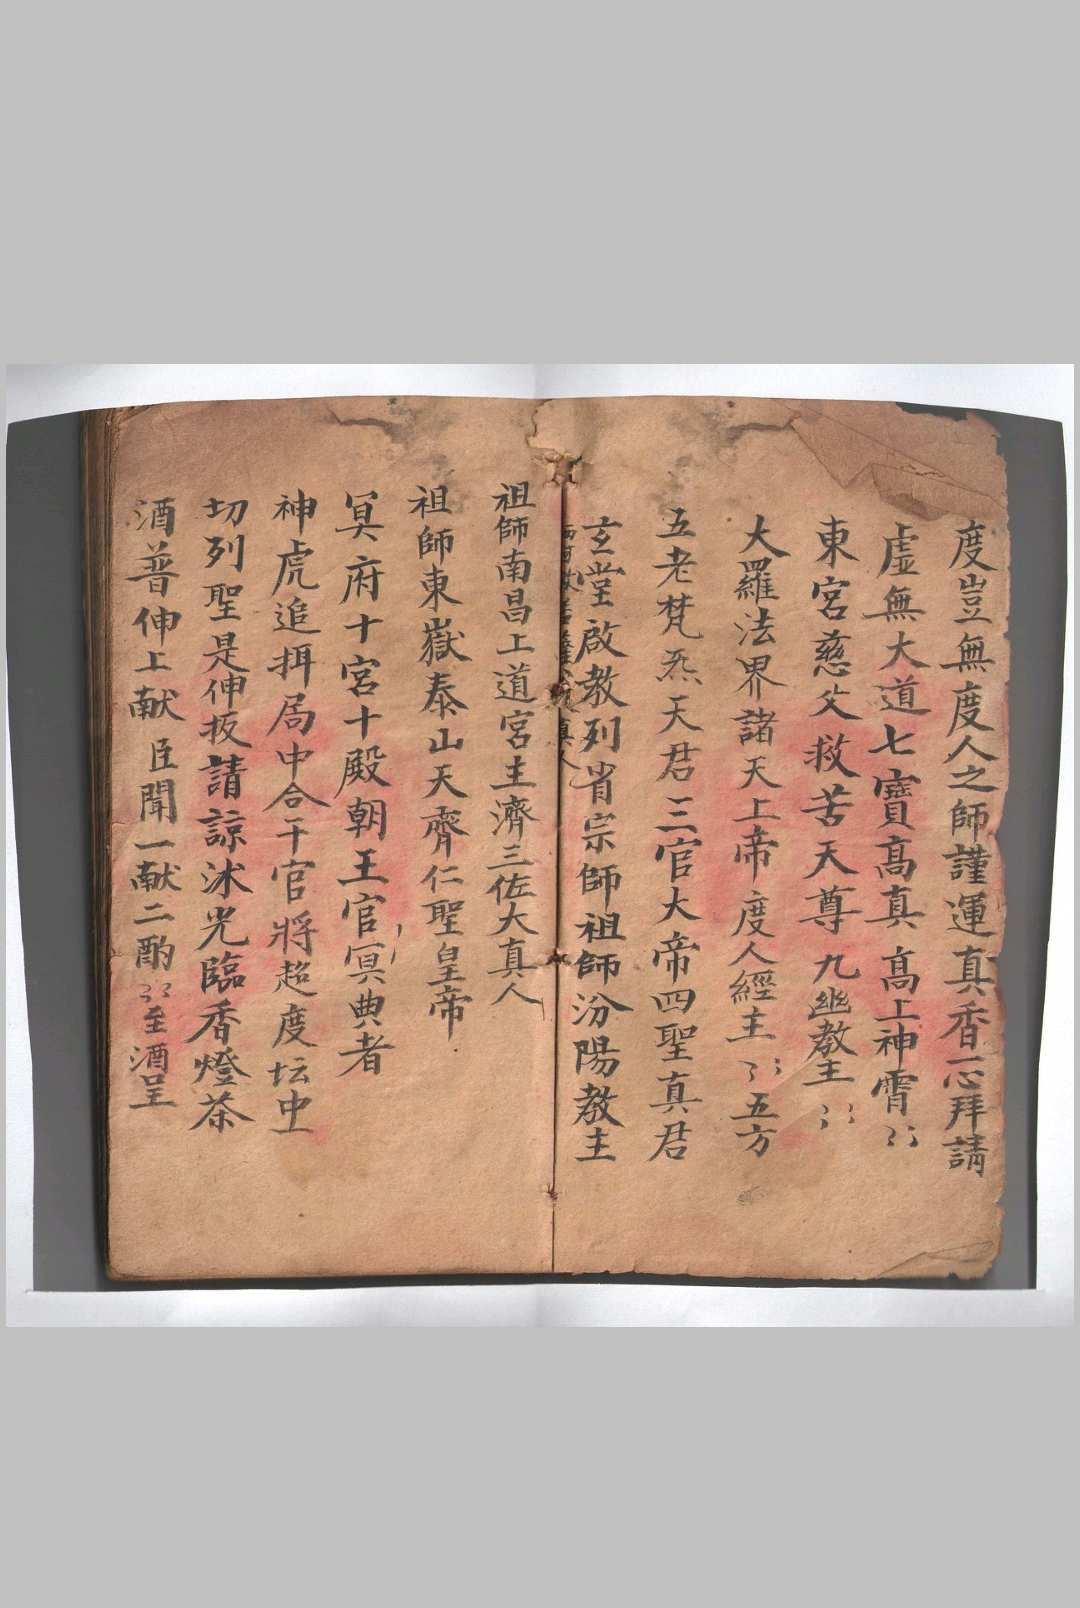 度豈無度人之師謹運真香一心拜請
虛無大道七寶高真高上神霄〻〻
東宮慈父救苦天尊九幽教主〻〻
大羅法界諸天上帝度人經主〻〻五方
五老梵炁天君三官大帝四聖真君
玄堂啟教列省宗師祖師汾陽教主
真人
祖師南昌上道宮主濟三佐大真人
祖師東嶽泰山天齊仁聖皇帝
冥府十宮十殿朝王官冥典者
神虎追攝局中合干官將超度坛中一
切列聖是伸拔請諒沐光臨香燈茶
酒普伸上献臣聞一献二酌〻〻至酒呈